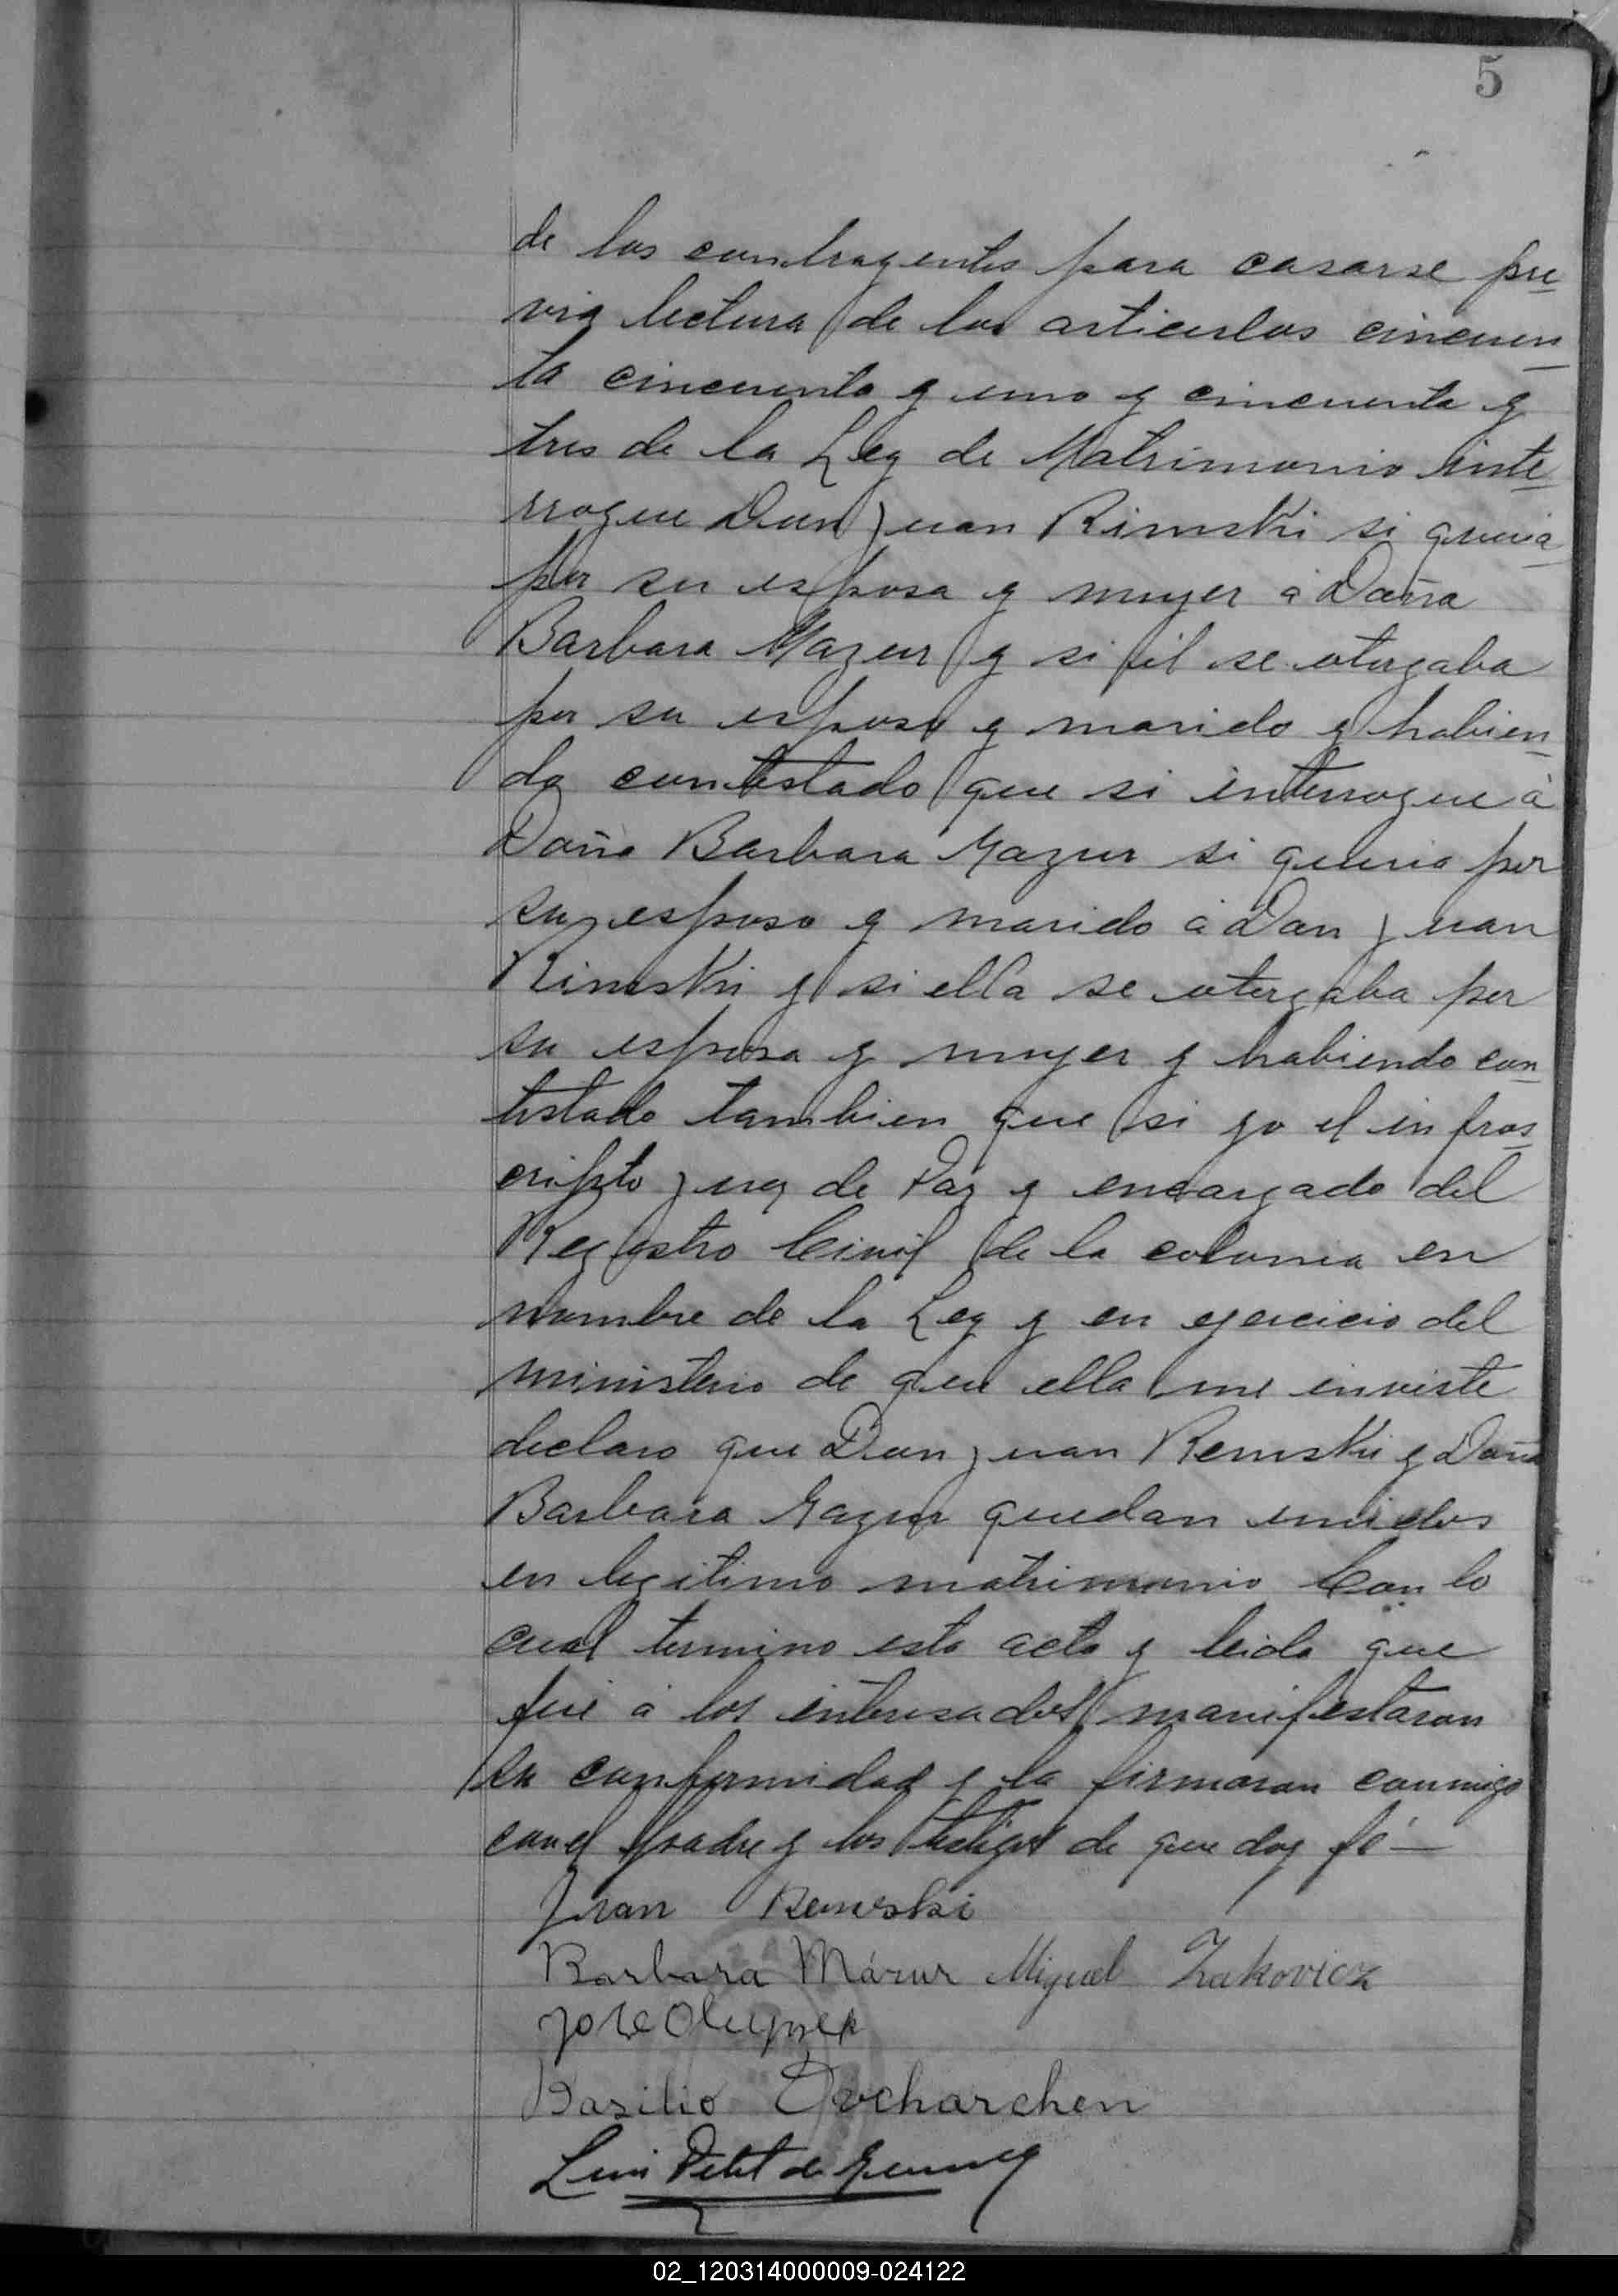 5
de los contrayentes para casarse pre
via lectura de los articulos cincuen
ta cincuenta y uno y cincuenta y
tres de la Ley de Matrimonio inte
rrogue Don Juan Rimski si queria
por su esposa y mujer á Doña
Barbara Mazur y si él se otorgaba
por su esposo y marido y habien
do contestado que si interrogue á
Doña Barbara Mazur si queria por
su esposo y marido á Don Juan
Rimski y si ella se otorgaba por
su esposa y mujer y habiendo con
testado tambien que si yo el infras
cripto Juez de Paz y encargado del
Registro Civil de la colonia en
nombre de la Ley y en ejercicio del
ministerio de que ella me inviste
declaro que Don Juan Remski y Doña
Barbara Mazur quedan unidos
en legitimo matrimonio Con lo
cual termino esta acta y leida que
fué á los interesados manifestaron
su conformidad y la firmaron conmigo
con el padre y los testigos de que doy fé—
Juan Remski
Barbara Mázur Miguel Zakovicz
Jose
Basilio Ovcharchen
Luis Petit de
02_120314000009-024122